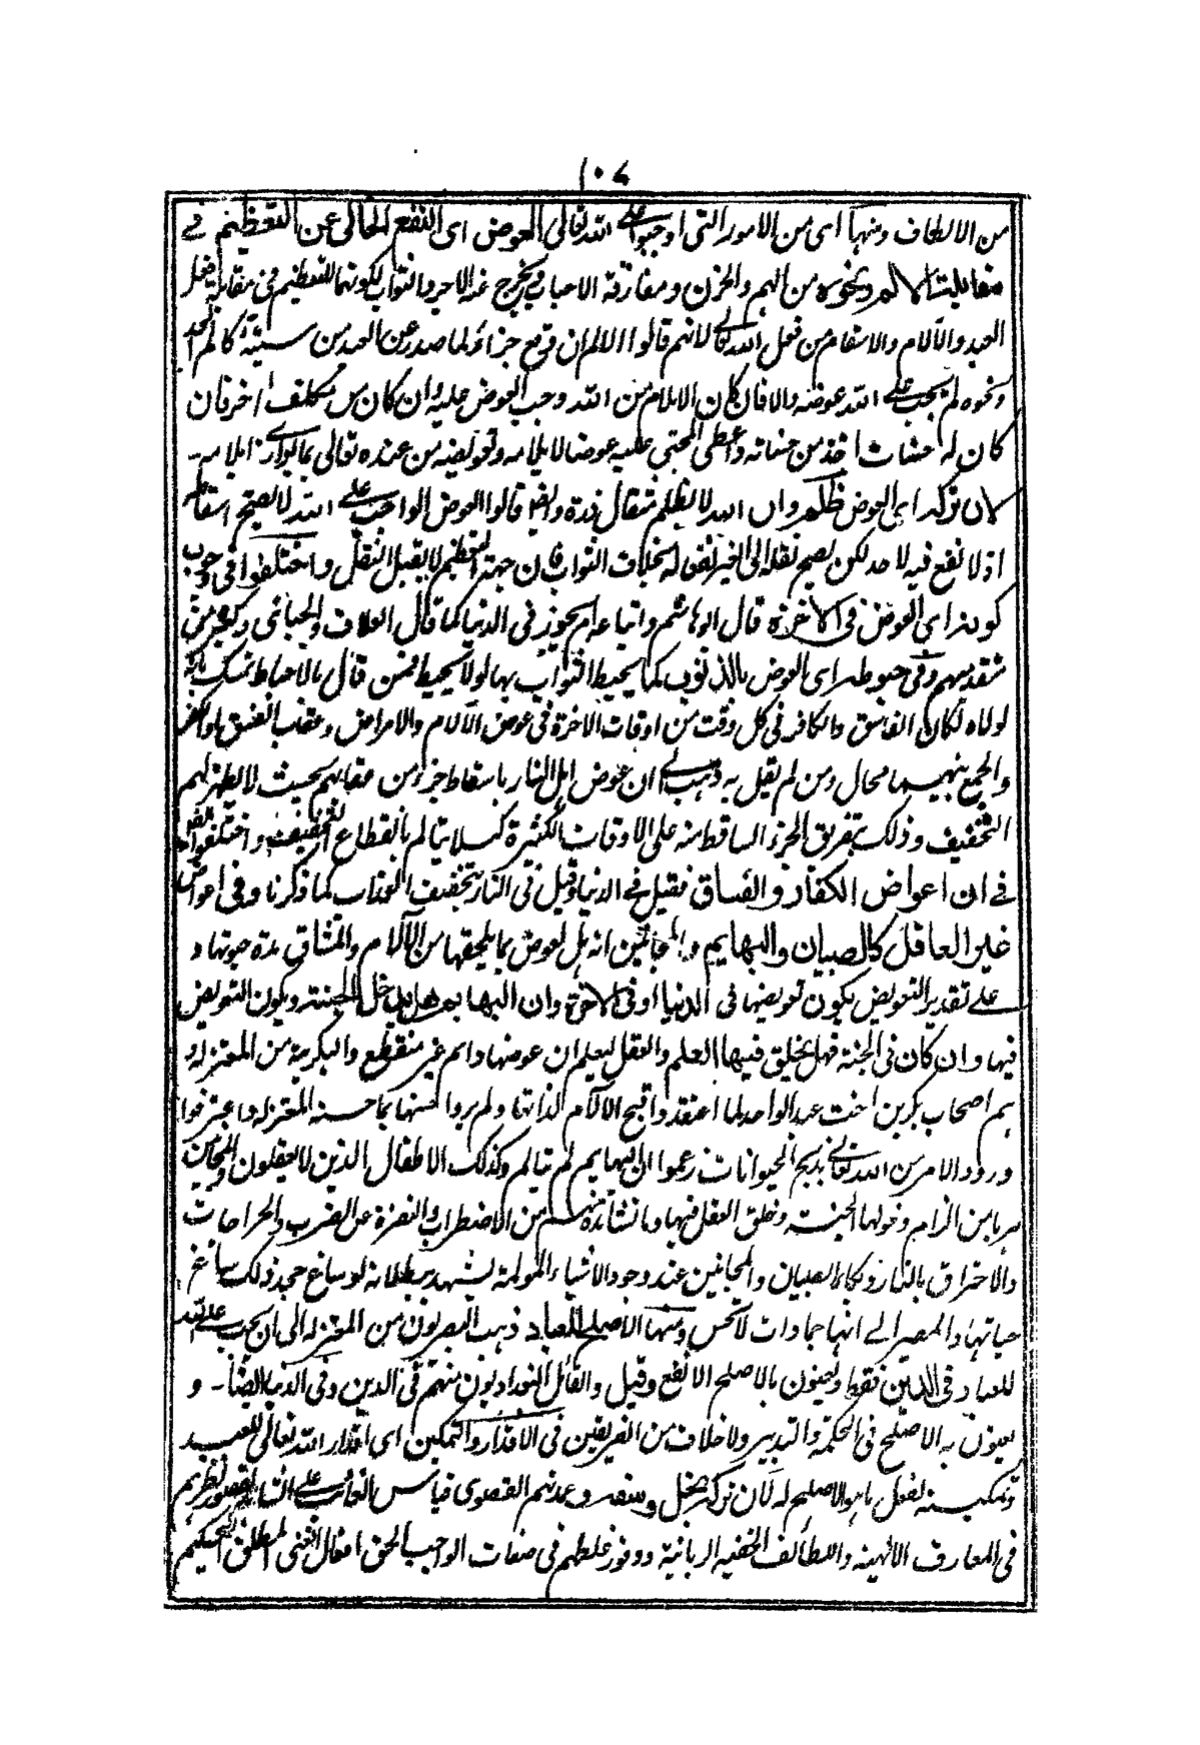 ١٠٤
من الالطاف ومنها اى من الامور التى اوجبوا على الله تعالى العوض اى النفع الخالى عن التعظيم فے
مقابلة الالم ونحوه من الهم والحزن ومفارقة الاحباب فيخرج عنه الاجر والثواب لكونهما للتعظيم فى مقابلة فعل
العبد والآلام والاسقام من فعل الله تعالى لانهم قالوا الالم ان وقع جزاء لما صدر عن العبد من سيئة كالم الحد
ونحوه لم يجب على الله عوضه والا فان كان الايلام من الله وجب العوض عليه وان كان من مكلف اخر فان
كان له حسنات اخذ من حسناته واعطى المجنى عليه عوضا لايلامه وتعويضه من عنده تعالى بما يوازى ايلامه
لان تركه اى العوض ظلم وان الله لا يظلم مثقال ذرة وايضا قالوا العوض الواجب على الله لا يصح اسقاطه
اذ لا نفع فيه لاحد لكن يصح نقله الى الغير لنفعه له بخلاف الثواب فان جهة التعظيم لا يقبل النقل واختلفوا فى وجوب
كونه اى العوض فى الاخرة قال ابو هاشم واتباعه ام يجوز فى الدنيا كما قال العلاف والجبائى وكثير من
متقدميهم وفى حبوطه اى العوض بالذنوب كما يحبط الثواب بها او لا يحبط فمن قال بالاحباط تمسك بانه
لولاه لكان الفاسق والكافر فى كل وقت من اوقات الاخرة فى عوض الآلام والامراض وعقاب الفسق او الكفر
والجمع بينهما محال ومن لم يقل به ذهب الى ان عوض اهل النار باسقاط جزء من عقابهم بحيث لا يظهر لهم
التخفيف وذلك بتفريق الجزء الساقط منه على الاوقات الكثيرة كيلا يتألم بانقطاع التخفيف واختلفوا ايضا
فے ان اعواض الكفار والفساق فقيل فے الدنيا وقيل فى النار بتخفيف العذاب كما ذكرنا وفى اعواض
غير العاقل كالصبيان والبهايم والمجانين انه هل يعوض بما يلحقها من الآلام والمشاق مدة حيوتها و
على تقدير التعويض يكون تعويضها فى الدنيا او فى الاخرة وان البها يم هل يدخل الجنة ويكون التعويض
فيها وان كان فى الجنة فهل يخلق فيها العلم والعقل ليعلم ان عوضها دائم غير منقطع والبكرية من المعتزلة و
هم اصحاب بكر بن اخت عبد الواحد لما اعتقدوا قبح الآلام لذاتها ولم يروا حسنها بما حسنه المعتزلة واعترفوا
ورود الامر من الله تعالى بذبح الحيوانات زعموا ان البهايم لم تتالم وكذلك الاطفال الذين لا يعقلون والمجانين
هربا من الزام دخولها الجنة وخلق العقل فيها وما نشاهده منهم من الاضطراب والنفرة عن الضرب والجراحات
والاحتراق بالنار وبكاء الصبيان والمجانين عند وجود الاشياء المولمة ليشهد ببطلانه لو ساغ جحد ذلك ساغ
حياتها والمصير الے انها جمادات لا تحس ومنها الاصلح للعباد ذهب البصريون من المعتزلة الى ان يجب على الله
للعباد فى الدين فقط ويعنون بالاصلح الانفع وقيل والقائل البغداديون منهم فى الدين وفى الدنيا ايضا و
يعنون به الاصلح فى الحكمة والتدبير ولا خلاف من الفريقين فى الاقدار والتمكين اى اقدار الله تعالى للعبد
وتمكينه لفعل ما هو الاصلح له لان تركه بخل وسفه وعدتهم القصوى قياس الغائب على الشاهد لقصور نظرهم
فى المعارف الالهية واللطائف الخفية الربانية ووفور غلطهم فى صفات الواجب الحق افعال الغنى المطلق الحكيم